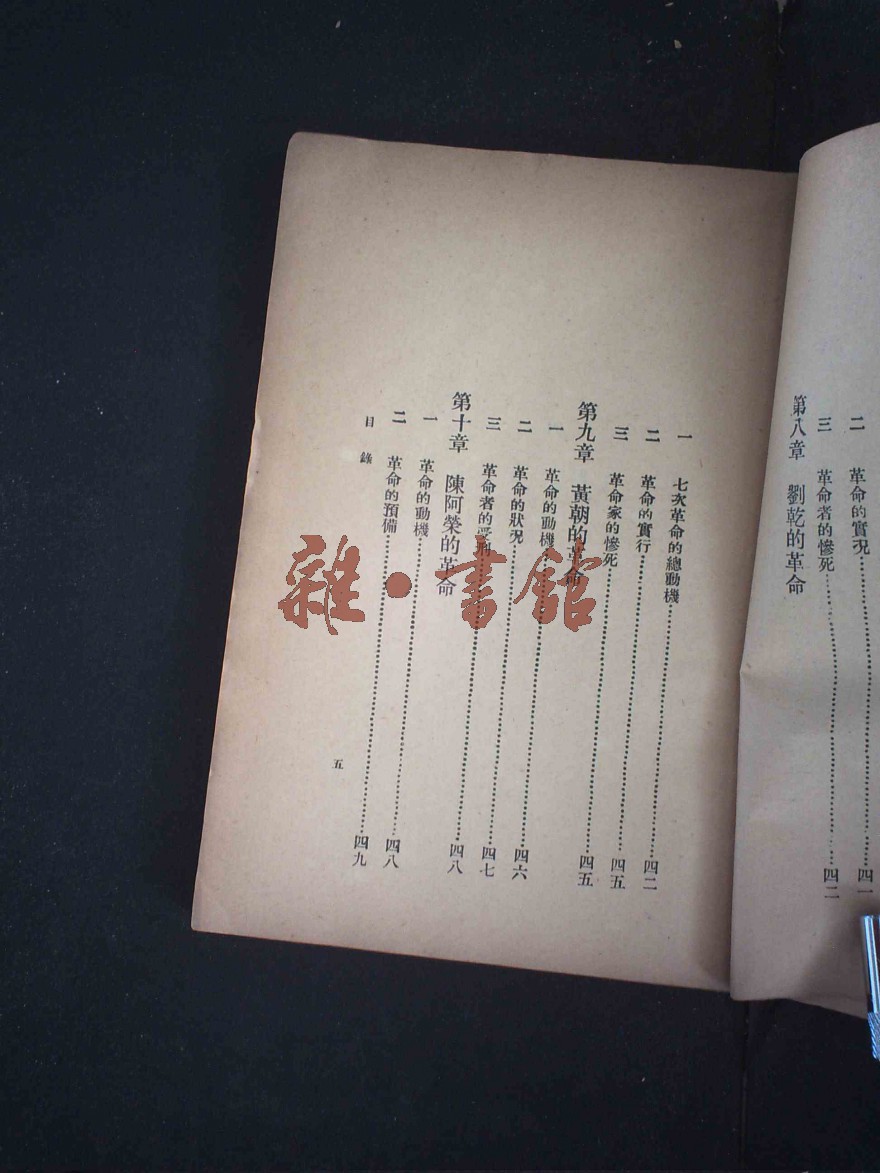 二 革命的實況……四一
三 革命者的慘死……四二
第八章 劉乾的革命
一 七次革命的總動機……四二
二 革命的實行……四五
三 革命家的慘死……四五
第九章 黃朝的革命
一 革命的動機……四六
二 革命的狀況……四七
三 革命者的受刑……四八
第十章 陳阿榮的革命
一 革命的動機……四八
二 革命的預備……四九
目錄 五
雜·書館